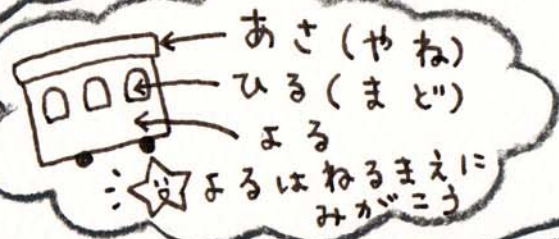 あさ(やね)
ひる(まど)
よる
よるはねるまえに
みがこう